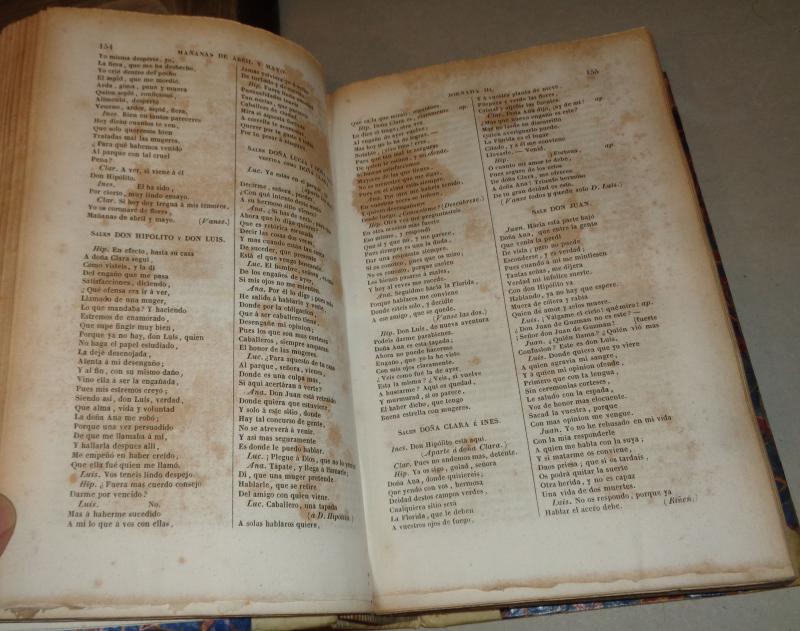 154
MAÑANAS DE ABRIL Y MAYO.
Yo misma desperté, yo,
La fiera, que me ha deshecho,
Yo crié dentro del pecho
El aspid, que me mordió.
Arda, gima, pena y muera
Quien sopló, confesionó,
Alimentó, despertó
Veneno, ardor, aspid, fiera.
Ines. Bien en tantos pareceres
Hoy dirán cuantos te ven,
Que solo queremos bien
Tratadas mal las mugeres.
¿Para qué habemos venido
Al parque con tal cruel
Pena?
Clar. A ver, si viene á él
Don Hipólito.
Ines. El ha sido,
Por cierto, muy lindo ensayo.
Clar. Si hoy doy tregua á mis temores,
Yo os coronaré de flores,
Mañanas de abril y mayo. (Vanse.)
SALES DON HIPÓLITO Y DON LUIS.
Hip. En efecto, hasta su casa
A doña Clara seguí,
Como visteis, y la dí
Del engaño que me pasa
Satisfacciones, diciendo,
¿Qué ofensa era ir á ver,
Llamado de una muger,
Lo que mandaba? Y haciendo
Estremos de enamorado,
Que supe fingir muy bien,
Porque ya no hay, don Luis, quien
No haga el papel estudiado,
La dejé desenojada,
Atenta á mi desengaño;
Y al fin, con su mismo daño,
Vino ella á ser la engañada,
Pues mis estremos creyó;
Siendo así, don Luis, verdad,
Que alma, vida y voluntad
La doña Ana me robó;
Porque una vez persuadido
De que me llamaba á mí,
Y hallarla despues allí,
Me empeñó en haber creido,
Que ella fué quien me llamó.
Luis. Vos teneis lindo despejo.
Hip. ¿Fuera mas cuerdo consejo
Darme por vencido?
Luis. No.
Mas á haberme sucedido
A mí lo que á vos con ellas,
Jamas volviera yo á vellas
De turbado y de corrido.
Hip. Fuera linda
Puntualidades
Con novias, que
Caballero de ciudad.
Mira si aquesta
A corrella te acomoda
Querer por la gustosa
Por lo pesar á
SALES DOÑA LUCÍA
VESTIDA COMO DOÑA
Luc. Ya estás en el parque;
Decirme, señora, puedes
¿Con qué intento desta suerte
A su hermoso sitio vienes?
Ana. ¿Si has de verlo,
Ahora que lo digo quieres?
Que es retórica escusada
Decir las cosas dos veces,
Y mas cuando están tan cerca
De suceder, que presente
Está el que vengo buscando.
Luc. El hombre, señora,
De los engaños de ayer,
Si mis ojos no me mienten.
Ana. Por él lo digo; pues solo
He salido á hablarle y verle,
Donde por la obligacion,
Que á ser caballero tiene,
Desengañe mi opinion;
Pues los que son mas corteses
Caballeros, siempre amparan
El honor de las mugeres.
Luc. ¿Para aquesto de tu casa
Al parque, señora, vienes,
Donde es una culpa mas,
Si aquí acertáran á verte?
Ana. Don Juan está retraido
Donde quiera que estuviere,
Y solo á este sitio, donde
Hay tal concurso de gente,
No se atreverá á venir.
Y así mas seguramente
Es donde le puedo hablar.
Luc. ¡Plegue á Dios, que no lo yerres!
Ana. Tápate, y llega á llamarle;
Di, que una muger pretende
Hablarle, que se retire
Del amigo con quien viene.
Luc. Caballero, una tapada
(á D. Hipólito.)
A solas hablaros quiere,
JORNADA III.
155
Que es la que mirais, seguidme.
Hip. Doña Clara es, claramente ap.
Lo dice el trage; sin duda
Al engaño de ayer vuelve;
Mas hoy no la ha de lograr.—
Notable, ¡vive Dios! eres,
Pues que tan mal has pensado
De quien te estima, y no ofende,
Y no se mereció mis años,
Para que tapada intentes
Ana. Por mí me habeis tenido,
Y quisiera muchas veces
Hip. Otra vez me preguntasteis
En esta ocasion mas fuerte
Eso mismo, y respondí
Que sí y que no, y me parece,
Pues siempre es una la duda,
Dar una respuesta siempre.
Si os conozco, pues que os miro;
No os conozco, porque suelen
Los bienes pasarse á males,
Y hoy al reves me sucede.
Ana. Seguidme hácia la Florida,
Porque hablaros me conviene
Donde esteis solo, y decidle
A ese amigo, que se quede.
(Vanse las dos.)
Hip. Don Luis, de nueva aventura
Podeis darme parabienes.
Doña Ana es esta tapada;
Ahora no puede haberme
Engaño, que yo la he visto
Con mis ojos claramente.
¿Veis como fué la de ayer
Esta la misma? ¿Veis, si vuelve
A buscarme? Aquí os quedad,
Y murmurad, si os parece,
El haber dicho, que tengo
Buena estrella con mugeres.
SALES DOÑA CLARA É INES.
Ines. Don Hipólito está aquí.
(Aparte á doña Clara.)
Clar. Pues no andemos mas, detente.
Hip. Ya os sigo, guiad, señora
Doña Ana, donde quisiereis;
Que yendo con vos, hermosa
Deidad destos campos verdes,
Cualquiera sitio será
La Florida, que le deben
A vuestros ojos de fuego,
Y á vuestra planta de nieve,
Púrpura y verdor las flores,
Cristal y aljofar las fuentes.
Clar. Doña Ana dijo, ¡ay de mí! ap.
¿Qué nuevo engaño es este?
Mas no hallo su disimulo
Quien averiguarlo puede.
La Florida es el lugar
Citado, y á él me conviene
Llevarle. — Venid.
Hip. ¡Fortuna, ap.
O cuanto mi amor te debe,
Pues seguro de los celos
De doña Clara, me ofreces
A doña Ana! Triunfo hermoso
De tu gran deidad es esto.
(Vanse todos y queda solo D. Luis.)
SALE DON JUAN.
Juan. Hácia esta parte bajó
Doña Ana, que entre la gente
Que venia la perdí
De vista; pero no puede
Esconderse, y es verdad;
Pues cuando á mi me mintiesen
Tantas señas, me dijera
Verdad mi infelice suerte.
Con don Hipólito va
Hablando, ya no hay que espere.
Muera de cólera y rabia
Quien de amor y zelos muere.
Luis. ¡Válgame el cielo! ¡qué miro! ap.
¿Don Juan de Guzman no es este? —
¿Señor don Juan de Guzman? (fuerte
Juan. ¿Quién llama? ¿Quién vió mas
Confusion? Este es don Luis.
Luis. Donde quiera que yo viere
A quien agravia mi sangre,
Y á quien mi opinion ofende,
Primero que con la lengua,
Sin ceremonias corteses,
Le saludo con la espada,
Voz de honor mas elocuente.
Sacad la vuestra, porque
Con mas opinion me vengue.
Juan. Yo no he rehusado en mi vida
Con la mia responderle
A quien me habla con la suya;
Y si matarme os conviene,
Daos priesa; que si os tardais,
Os podrá quitar la suerte
Otra herida, y no es capaz
Una vida de dos muertes.
Luis. No os respondo, porque ya
Hablar el acero debe. (Riñen.)